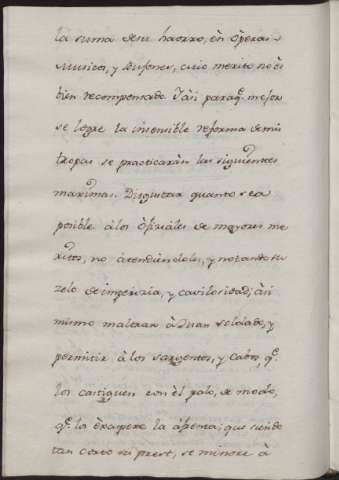 la suma de su haorro, en Operas
Musicos, y Bufones, cuio merito no és
bien recompensado. Y asi paraq.e mejor
se logre la insensible reforma de mis
tropas se practicarán las siguientes
maximas. Disgustar quanto sea
posible á los Oficiales de mayores me
ritos, no atendiendoles, y notando su
zelo de impericia, y cavilosidad; asi
mismo maltratar à Juan soldado, y
permitir à los sargentos, y Cabos, q.e
los castiguen con èl palo, de modo,
q.e lo èxaspere la afrenta; que siendo
tan corto su prest, se minore à